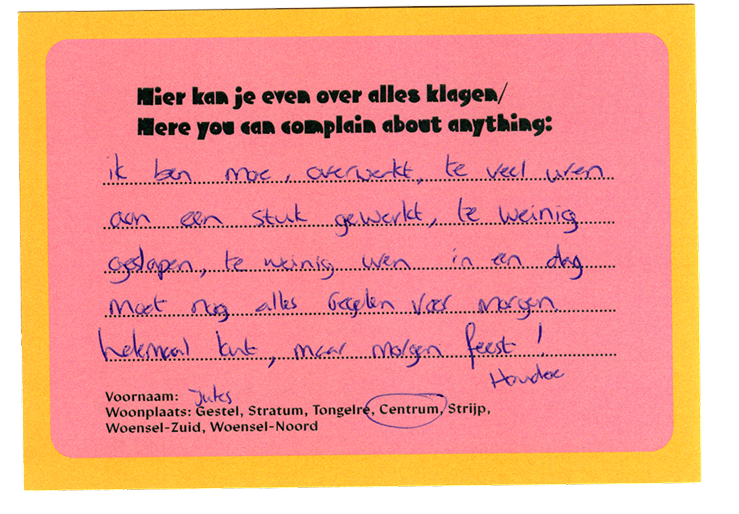 Hier kan je even over alles klagen/
Here you can complain about anything:
ik ben moe, overwerkt, te veel uren
aan een stuk gewerkt, te weinig
geslapen, te weinig uren in een dag
moet nog alles regelen voor morgen
helemaal kut, maar morgen feest!
Houdoe
Voornaam: Jules
Woonplaats: Gestel, Stratum, Tongelre, Centrum, Strijp,
Woensel-Zuid, Woensel-Noord